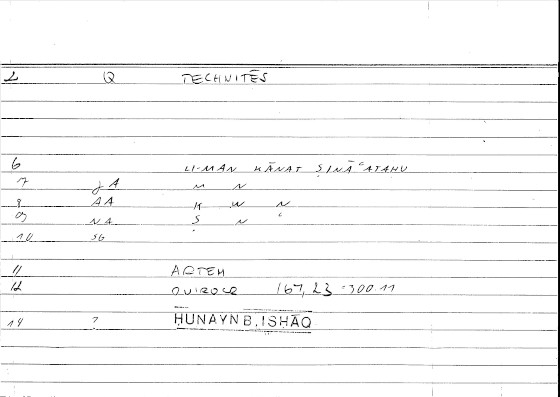 2 Q TECHNITĒS
6 LI-MAN KĀNAT ṢINĀʿATAHU
7 JA M N
8 AA K W N
9 NA Ṣ N ʿ
10 SG
11 ARTEM
12 ONIROCR 167,23 - 300.11
14 ? ḤUNAYN B. ISḤĀQ